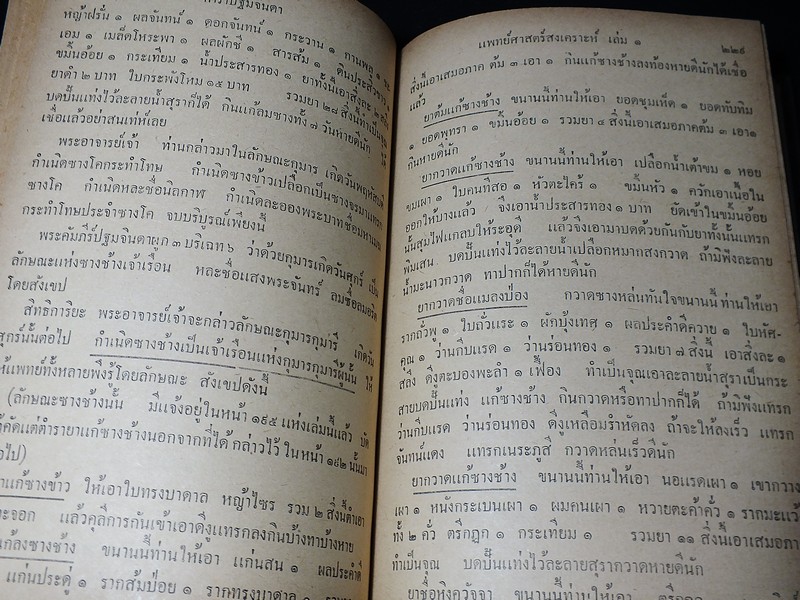 คาราปฐมจินดา
หญ้าฝรั่น ๑ ผลจันทน์ ๑ ดอกจันทน์ ๑ กระวาน ๑ กานพลู ๑
เอม ๑ เมล็ดโหระพา ๑ ผลผักชี ๑ สารส้ม ๑ ดินประสิวขาว ๑
ขมิ้นอ้อย ๑ กระเทียม ๑ น้ำประสารทอง ๑ ยาทั้งนี้เอาสิ่งละ ๒
ยาดำ ๒ บาท ใบกระพังโหม ๑๕ บาท รวมยา ๒๘ สิ่งนี้ทำเป็นจุณ
บดปั้นแท่งไว้ละลายน้ำสุราก็ได้ กินแก้ลมซางทั้ง ๗ วันหายดีนัก ได้
เชื่อแล้วอย่าสนเท่ห์เลย
พระอาจารย์เจ้า ท่านกล่าวมาในลักษณะกุมาร เกิดวันพฤหัสบดี
กำเนิดซางโคกระทำโทษ กำเนิดซางข้าวเปลือกเป็นซางจรมาแทรก
ซางโค กำเนิดหละชื่อนิลกาฬ กำเนิดละอองพระบาทชื่อมหาเมฆ
กระทำโทษประจำซางโค จบบริบูรณ์เพียงนี้
พระคัมภีร์ปฐมจินดาผูก ๓ บริเฉท ๖ ว่าด้วยกุมารเกิดวันศุกร์ เป็น
ลักษณะแห่งซางช้างเจ้าเรือน หละชื่อแสงพระจันทร์ ลมชื่ออมอริต
โดยสังเขป
สิทธิการิยะ พระอาจารย์เจ้าจะกล่าวลักษณะกุมารกุมารี เกิดวัน
ศุกร์นั้นต่อไป กำเนิดซางช้างเป็นเจ้าเรือนแห่งกุมารกุมารีผู้นั้น ให้
แพทย์ทั้งหลายพึงรู้โดยลักษณะ สังเขปดังนี้
(ลักษณะซางช้างนั้น มีแจ้งอยู่ในหน้า ๑๙๕ แห่งเล่มนี้แล้ว บัด
คัดแต่ตำรายาแก้ซางช้างนอกจากที่ได้ กล่าวไว้ ในหน้า ๑๙๒ นั้นมา
ต่อไป)
ยาแก้ซางข้าว ให้เอาใบทรงบาดาล หญ้าไซร รวม ๒ สิ่งนี้ตำเอา
แล้วคุลีการกันเข้าเอาดีงูแทรกลงกินบ้างทาบ้างหาย
ซางช้าง ขนานนี้ท่านให้เอา แก่นสน ๑ ผลประคำดี
แก่นประดู่ ๑ รากส้มป่อย ๑ รากทรงบาดาล ๑
แพทย์ศาสตร์สงเคราะห์ เล่ม ๑ ๒๒๙
สิ่งนี้เอาเสมอภาค ต้ม ๓ เอา ๑ กินแก้ซางช้างลงท้องหายดีนักได้เชื่อ
แล้ว
ยาต้มแก้ซางช้าง ขนานนี้ท่านให้เอา ยอดชุมเห็ด ๑ ยอดทับทิม
๑ ยอดพุทรา ๑ ขมิ้นอ้อย ๑ รวมยา ๔ สิ่งนี้เอาเสมอภาคต้ม ๓ เอา ๑
กินหายดีนัก
ยากวาดแก้ซางช้าง ขนานนี้ท่านให้เอา เปลือกน้ำเต้าขม ๑ หอย
ขมเผา ๑ ใบคนทีสอ ๑ หัวตะไคร้ ๑ ขมิ้นหัว ๑ คว้านเอาเนื้อใน
ออกให้บางแล้ว จึงเอาน้ำประสารทอง ๑ บาท ยัดเข้าในขมิ้นอ้อย
นั้นสุมไฟแกลบให้ระอุดี แล้วจึงเอามาบดด้วยกันกับยาทั้งนั้นแทรก
พิมเสน บดปั้นแท่งไว้ละลายน้ำเปลือกหมากสงกวาด ถ้ามิฟังละลาย
น้ำมะนาวกวาด ทาปากก็ได้หายดีนัก
ยากวาดชื่อแมลงป่อง กวาดซางหล่นทันใจขนานนี้ท่านให้เอา
รากถั่วพู ๑ ใบถั่วแระ ๑ ผักบุ้งเทศ ๑ ผลประคำดีควาย ๑ ใบหัศ-
คุณ ๑ ว่านกีบแรด ๑ ว่านร่อนทอง ๑ รวมยา ๗ สิ่งนี้ เอาสิ่งละ ๑
สลึง ดีงูตะบองพะลำ ๑ เฟื้อง ทำเป็นจุณเอาละลายน้ำสุราเป็นกระ
สายบดปั้นแท่ง แก้ซางช้าง กินกวาดหรือทาปากก็ได้ ถ้ามิฟังแทรก
ว่านกีบแรด ว่านร่อนทอง ดีงูเหลือมรำหัดลง ถ้าจะให้ลงเร็ว แทรก
จันทน์แดง แทรกเนระภูสี กวาดหล่นเร็วดีนัก
ยากวาดแก้ซางช้าง ขนานนี้ท่านให้เอา นอแรดเผา ๑ เขากวาง
เผา ๑ หนังกระเบนเผา ๑ ผมคนเผา ๑ หวายตะค้าคั่ว ๑ รากมะแว้ง
ทั้ง ๒ คั่ว ตรีกฎุก ๑ กระเทียม ๑ รวมยา ๑๑ สิ่งนี้เอาเสมอภาค
ทำเป็นจุณ บดปั้นแท่งไว้ละลายสุรากวาดหายดีนัก
ขนานนี้ท่านให้เอา